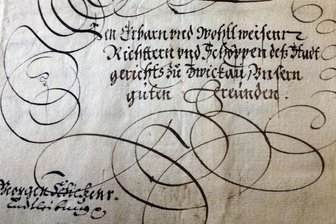 Den Erbarn vnd Wohlweisenn
Richttern vnd Schöppen deß Stadt
gerichts zu Zwickau, Vnsern
guten Freunden.
Morgen